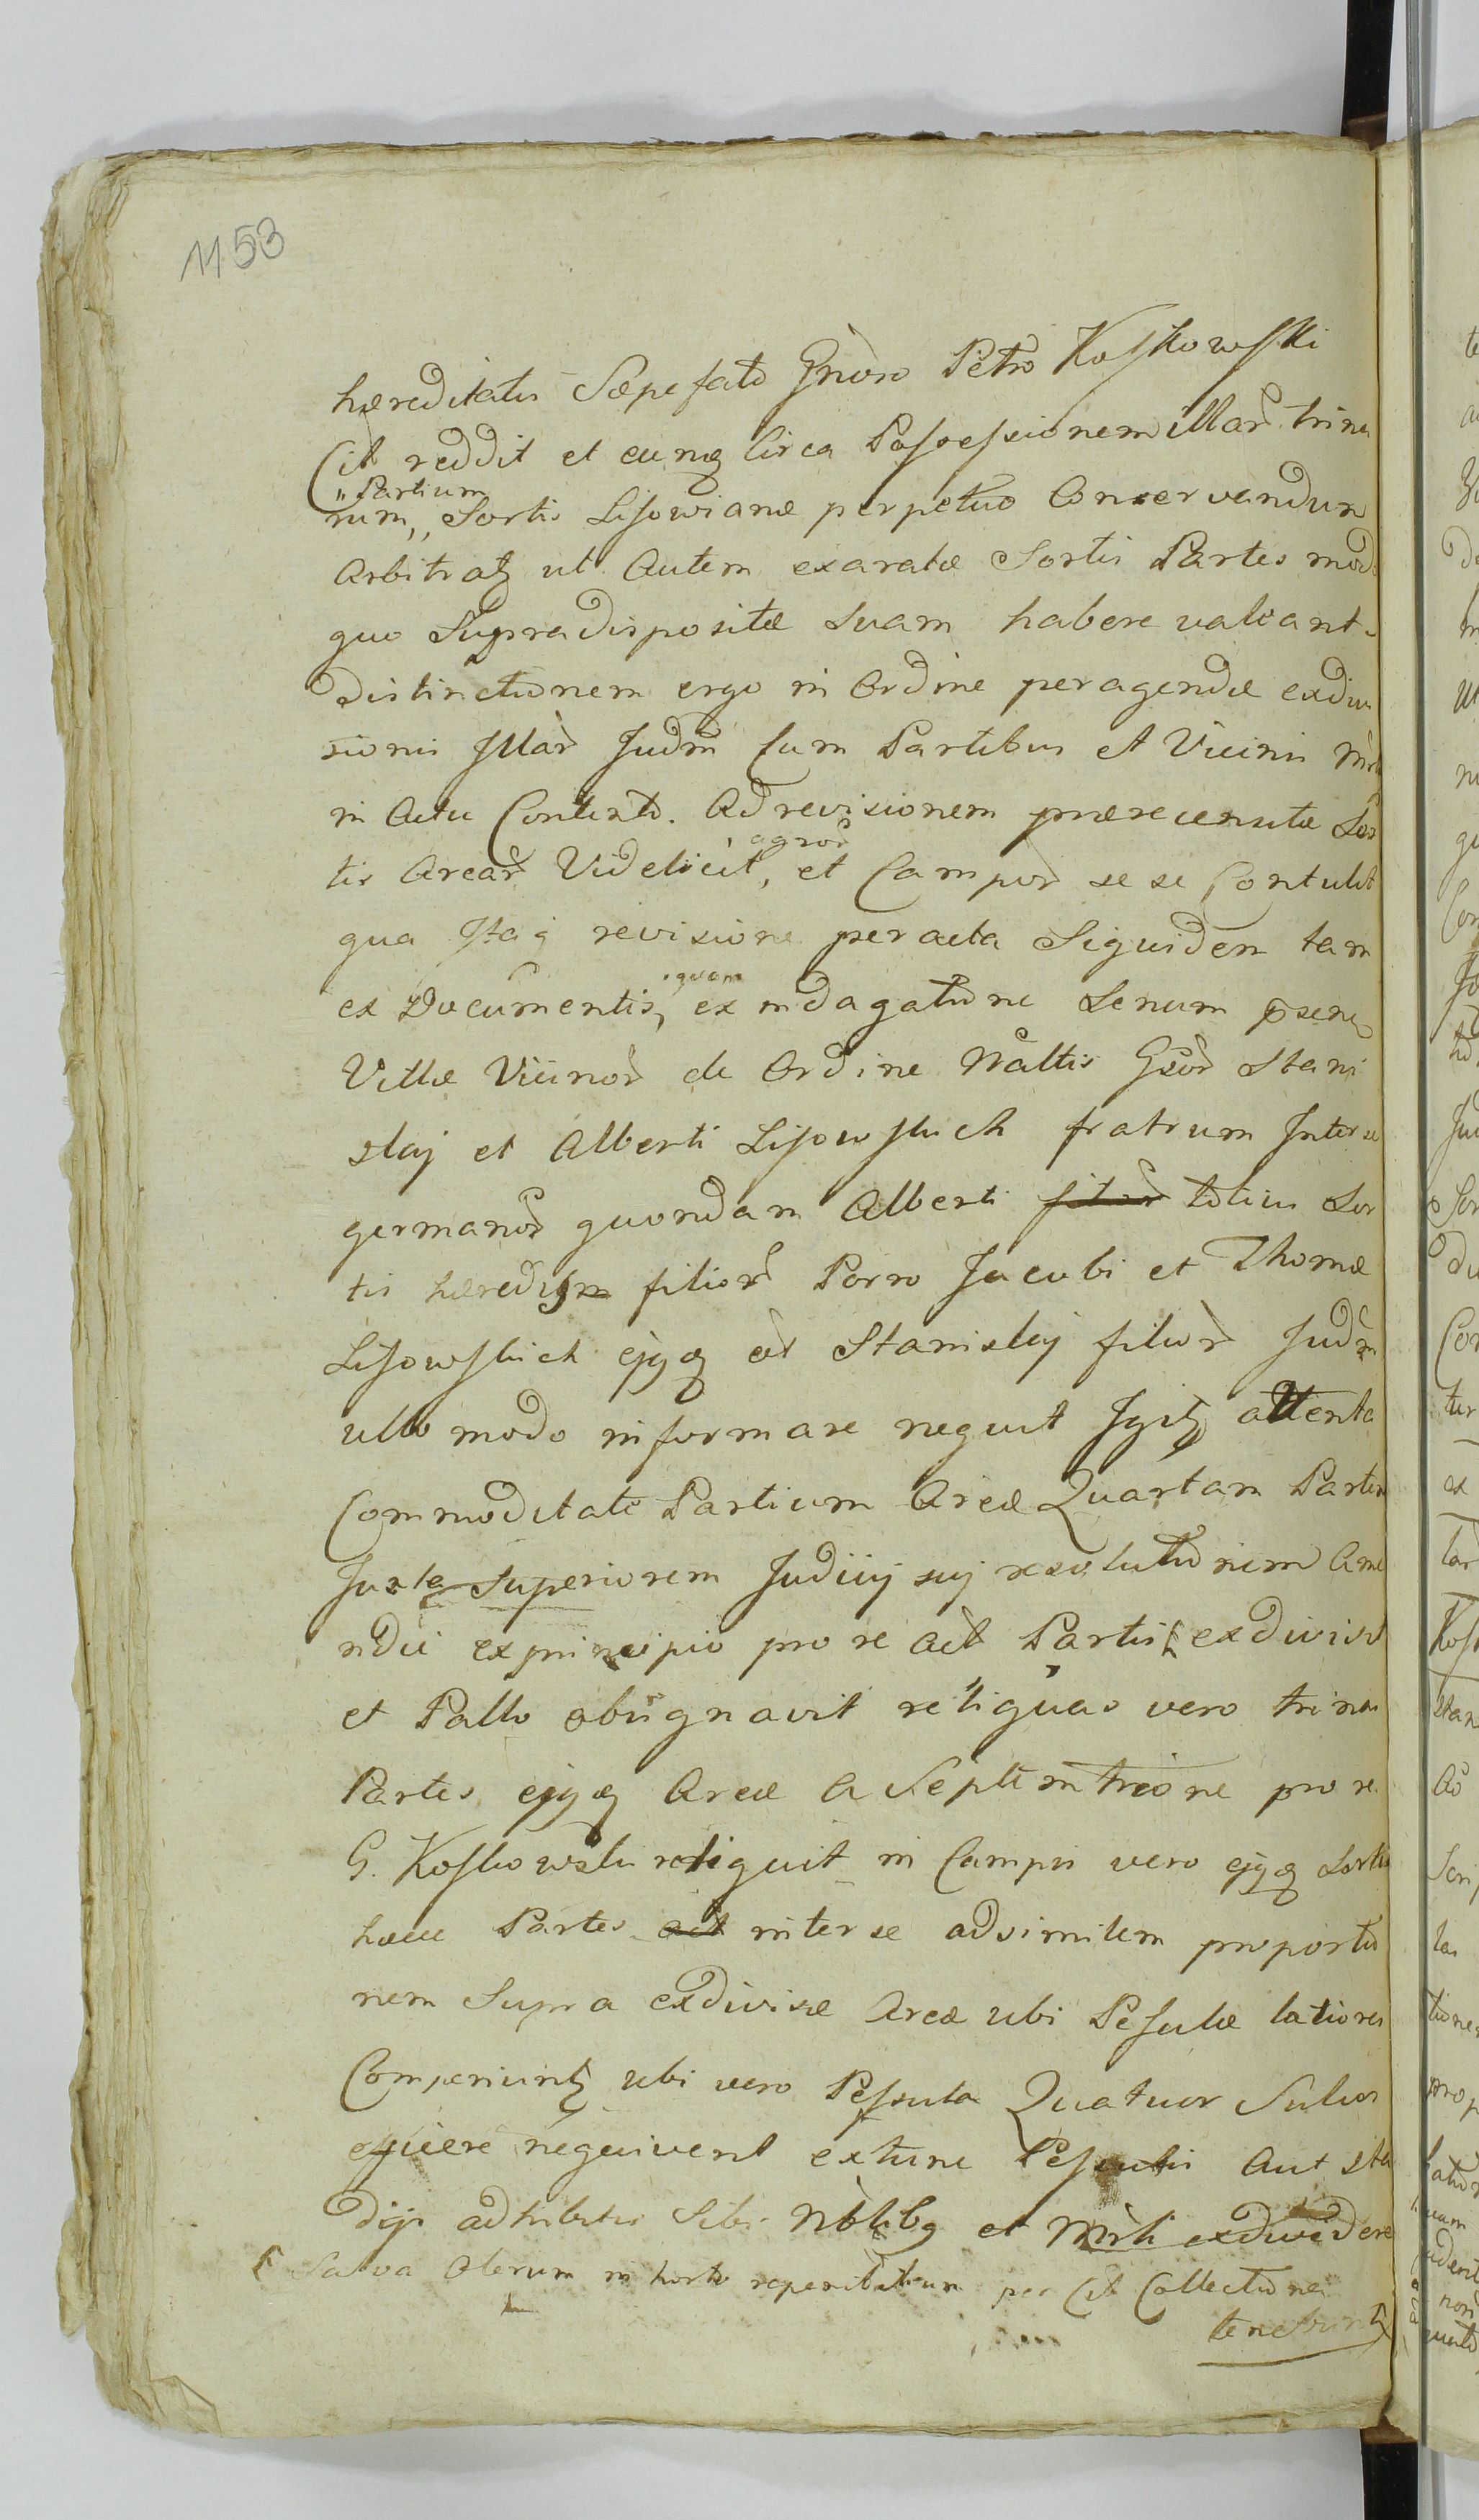 1153
hæreditatis Sæpefato Gnoso Petro Koskowski
Cit reddit et eumq circa Possessionem illar trina
"Partium
rum,, Sortis Lisowianæ perpetuo Conservandum
Arbitratz ut Autem exaratæ Sortis Partes mod
quo Supradispositæ suam habere valeant.
Distinctionem ergo in Ordine peragendæ exdivi
sionis Illar Judm cum Partibus et Vicinis
in Actu Contento. Ad revisionem præreunsitæ Sor
agror
tis Arear Videlicit, et Campor se se Contulit
qua Itaq revisione peracta Siquidem tam
quam
ex Documentis, ex indagatione Senum
Villæ Vicinor de Ordine Nattis Gsor Stani
slaj et Alberti Lisowskich fratrum Inter se
germanor quondam Alberti totius Sor
tis hæredis filior Porro Jacobi et Thomæ
Lisowskich ejgq et Stanislaj filior Judm
ullo modo informare nequit Igitz attenta
Commoditate Partium Areæ Quartam Partem
Juxta Superiorem Judicij suj resolutionem a me
ridie ex principio pro re act Partis exdivisit
et Pallo obsignavit reliquas vero trinas
Partes ejgq Areæ a Septemtrione pro re
G. Koskowski reliquit in Campis vero ejgq Sortis
hæce Partes act inter se adsimilem proportio
nem Supra exdivisæ Areæ ubi Pesulæ latiores
Comperiuntz ubi vero Pessula Quatuor Sulcos
efficere nequiverit extunc Pessulis Aut sta
dijs adhibitis Sibi Nobilibq et Mirli exdividere
Salva Olerum in horto reperibilium per Cit Collectione
tenebuntz